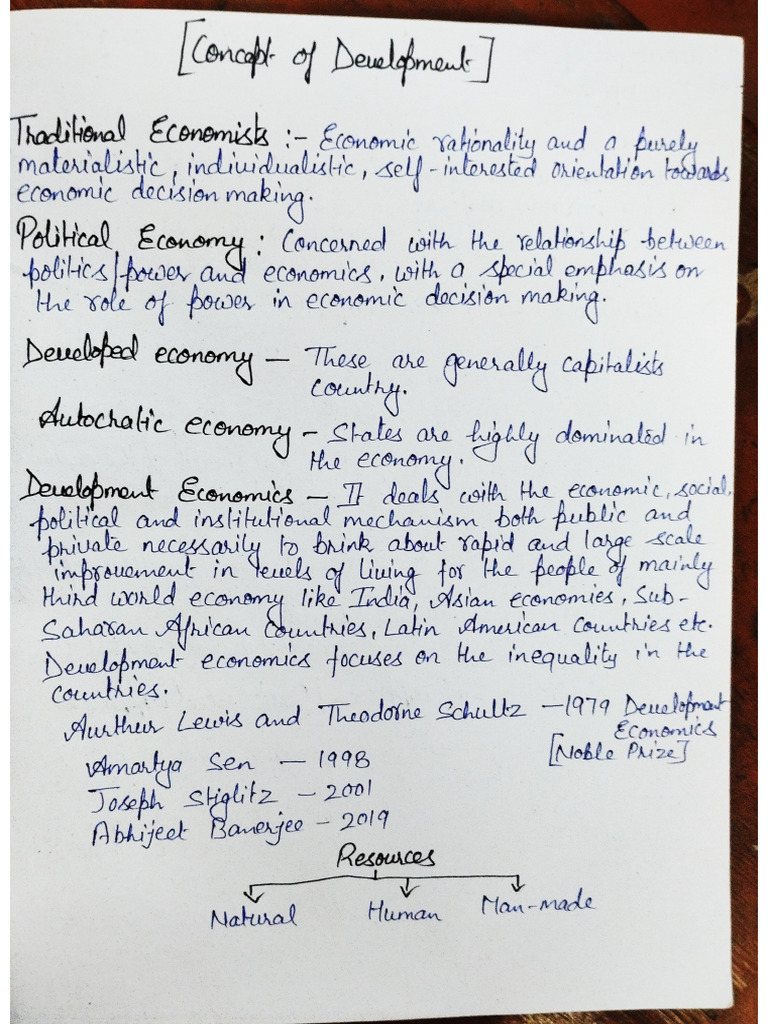 [Concept of Development]
Traditional Economists :- Economic rationality and a purely
materialistic, individualistic, self-interested orientation towards
economic decision making.
Political Economy : Concerned with the relationship between
politics/power and economics, with a special emphasis on
the role of power in economic decision making.
Developed economy — These are generally capitalists
country.
Autocratic economy - States are highly dominated in
the economy.
Development Economics - It deals with the economic, social,
political and institutional mechanism both public and
private necessarily to brink about rapid and large scale
improvement in levels of living for the people of mainly
third world economy like India, Asian economies, Sub-
Saharan African countries, Latin American countries etc.
Development economics focuses on the inequality in the
countries.
Aurthur Lewis and Theodorne Schultz - 1979 Development
Economics
[Noble Prize]
Amartya Sen - 1998
Joseph Stiglitz - 2001
Abhijeet Banerjee - 2019
Resources
Natural Human Man-made